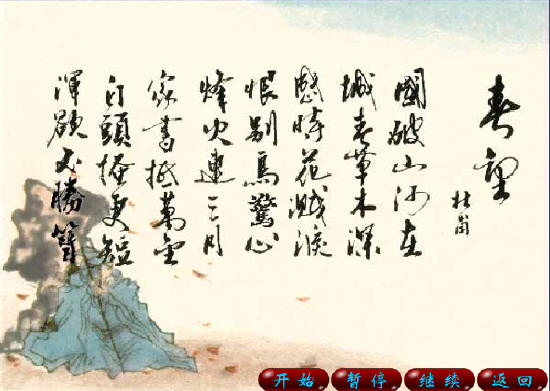 春望
杜甫
國破山河在
城春草木深
感時花濺淚
恨別鳥驚心
烽火連三月
家書抵萬金
白頭搔更短
渾欲不勝簪
开始
暂停
继续
返回